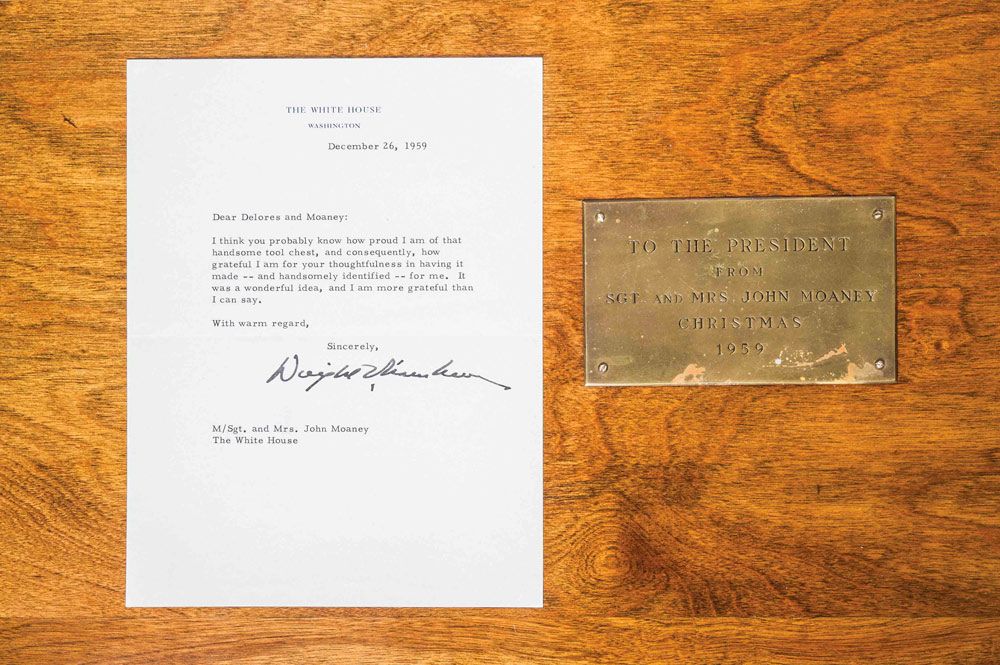 THE WHITE HOUSE
WASHINGTON
December 26, 1959
Dear Delores and Moaney:
I think you probably know how proud I am of that
handsome tool chest, and consequently, how
grateful I am for your thoughtfulness in having it
made -- and handsomely identified -- for me. It
was a wonderful idea, and I am more grateful than
I can say.
With warm regard,
Sincerely,
Dwight D Eisenhower
M/Sgt. and Mrs. John Moaney
The White House
TO THE PRESIDENT
FROM
SGT. AND MRS. JOHN MOANEY
CHRISTMAS
1959